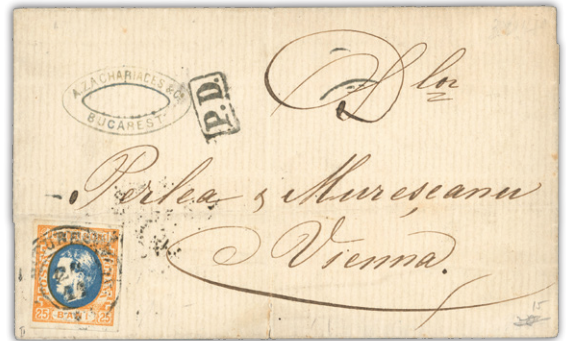 A. ZACHARIADES & Co.
BUCAREST
P.D.
Dlor
Perlea & Mureşeanu
Vienna.
25 BANI 25
15